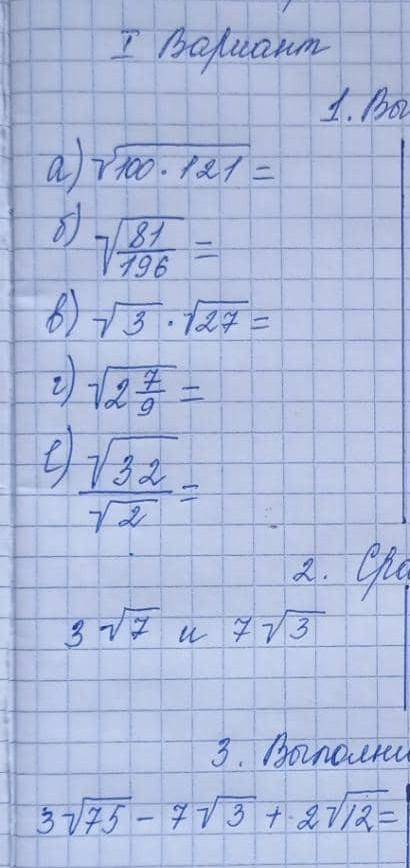 I Вариант
1. Вы
а) √(100 · 121) =
б) √(81/196) =
в) √3 · √27 =
г) √(2 7/9) =
е) √32/√2 =
2. Сра
3√7 и 7√3
3. Выполни
3√75 - 7√3 + 2√12 =